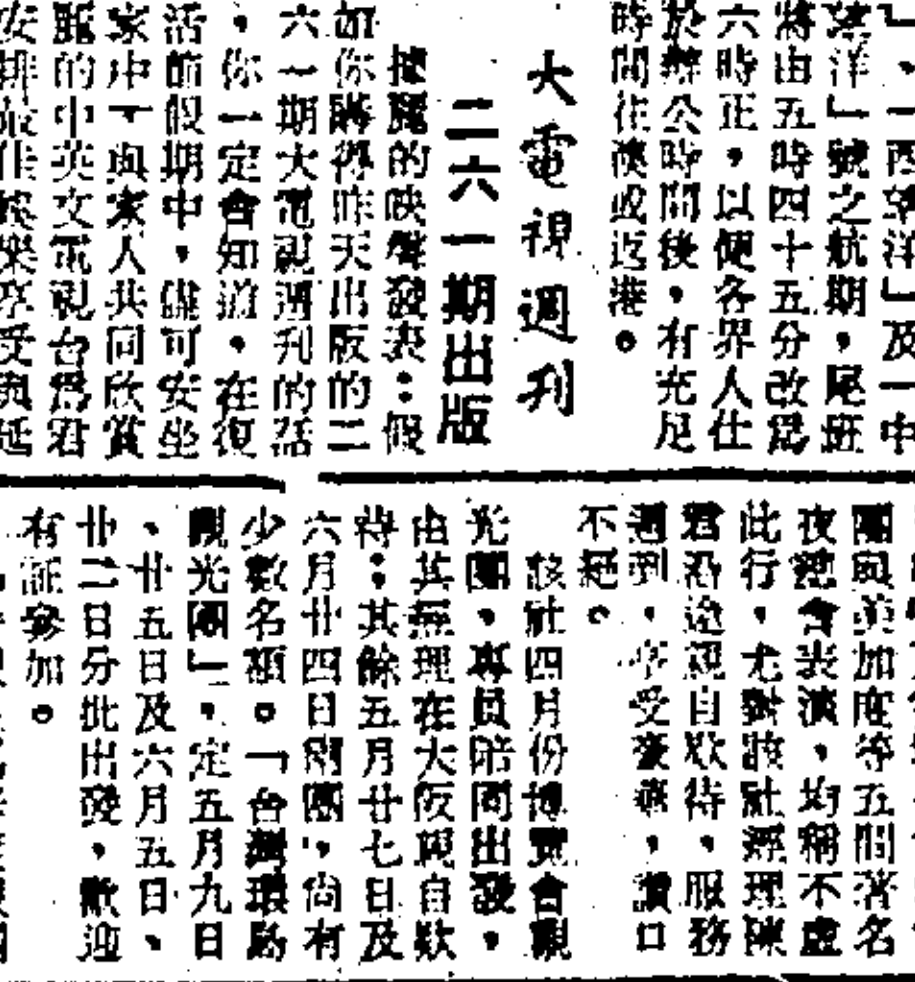 」,「西望洋」及「中
洋」號之航期,尾班
將由五時四十五分改爲
六時正,以便各界人仕
於辦公時間後,有充足
時間往澳或返港。
大電視週刊
二六一期出版
據麗的映聲發表:假
如你購得昨天出版的二
六一期大電視週刊的話
,你一定會知道,在復
活節假期中,儘可安坐
家中,與家人共同欣賞
麗的中英文電視台爲君
安排最佳娛樂享受與延
團與美加度等五間著名
夜總會表演,均稱不虛
此行,尤對該社經理陳
君沿途親自欵待,服務
週到,享受豪華,讚口
不絕。
該社四月份博覽會觀
光團,專員陪同出發,
由其經理在大阪親自欵
待:其餘五月廿七日及
六月廿四日兩團,尚有
少數名額。「台灣環島
觀光團」,定五月九日
、廿五日及六月五日、
廿二日分批出發,歡迎
有証參加。